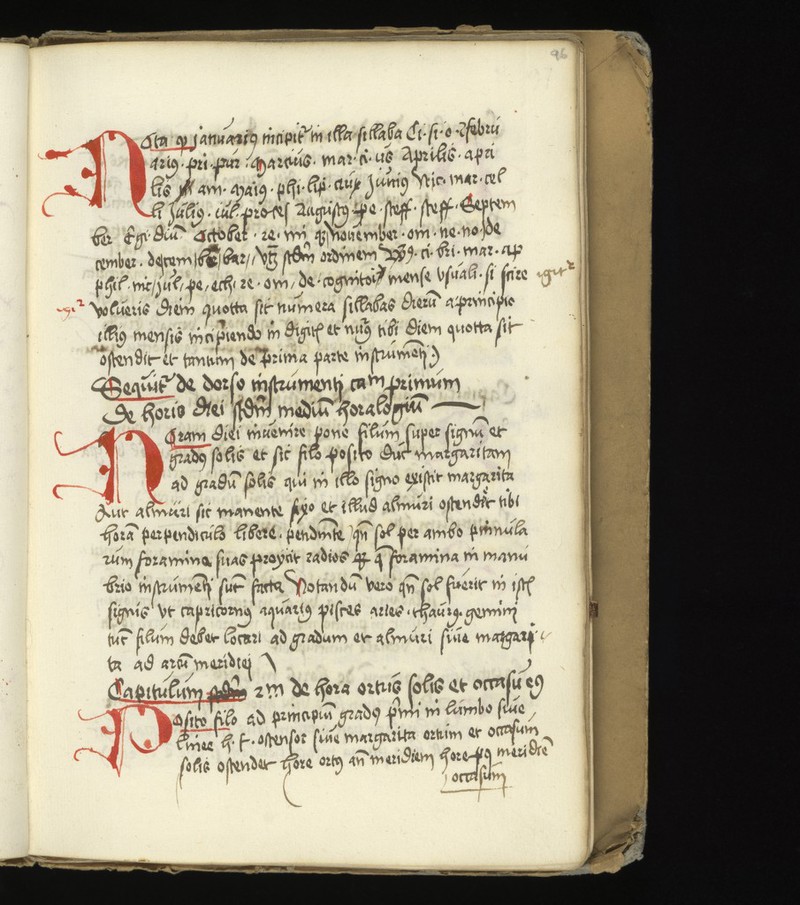 96
Nota qp januarius incipit in illa sillaba Ci·si·o· 2 febru
arius·pri·pur· Marcius·mar·ci·us Aprilis·apri
lis am· Maius·phi·lip·crux Junius Nic·mar·cel
li Julius·iul·pro·ces Augustus pe·steff·steff·Septem
ber Egi·diu October·re·mi November·om·ne·no·de
cember·decem bar ordinem ci·bri·mar·ap
phil·nic·jul·pe·ech·re·om·de·cognito mense vsuali·si scire igitr
igitr volueris diem quotta sit numera sillabas dieru a principio
illius mensis incipiendo in et tibi diem quotta sit
ostendit et tantum de prima parte instrumenti
Sequitr de dorso instrumenti cam primum
de horis diei scdm mediu horalogium
Horam diei invenire pone filum super signu et
gradus solis et sic filo posito duc margaritam
ad gradu solis qui in illo signo existit margarita
Aut almuri sic manente fixo et illud almuri ostendit tibi
hora perpendiculo libere·pendente qn sol per ambo pinnula
rum foramina suas proycit radios foramina in manu
brio instrumenti sut facta Notandu vero qn sol fuerit in ist
signis vt capricornus aquarius pisces aries·thaurus gemini
tuc filum debet locari ad gradum et almuri siue margari
ta ad arcu meridiei
Capitulum 2m de hora ortus solis et occasu eius
Posito filo ad principiu gradus primi in limbo siue
linee h·f·ostensor siue margarita ortum et occasum
solis ostendet hore ortus an meridiem hore pus meridie
occasum